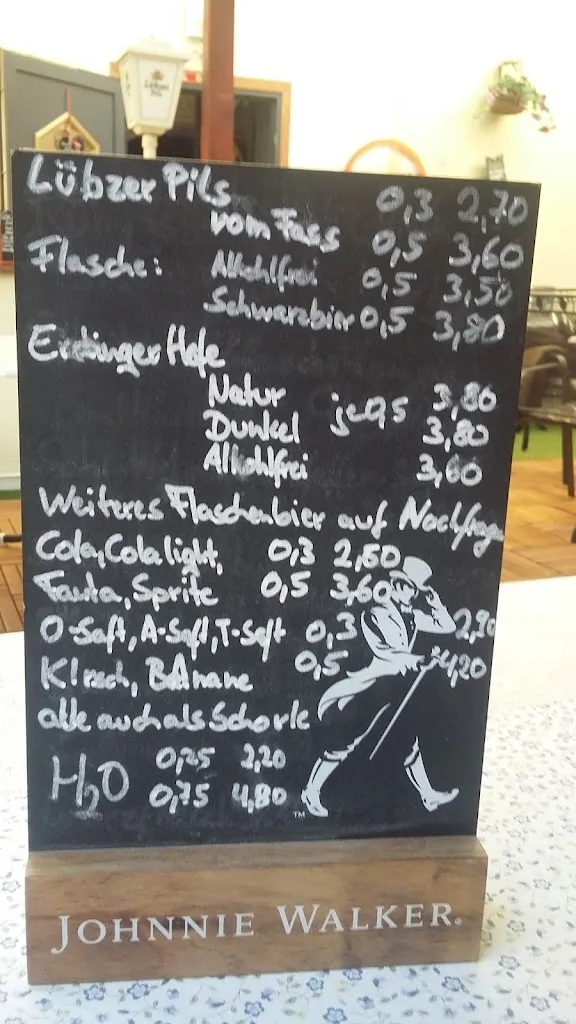 Lübzer Pils 0,3 2,70
vom Fass 0,5 3,60
Flasche: Alkohlfrei 0,5 3,50
Schwarzbier 0,5 3,80
Erdinger Hefe
Natur 3,80
Dunkel je 0,5 3,80
Alkohlfrei 3,60
Weiteres Flaschenbier auf Nachfragen
Cola, Cola light, 0,3 2,60
Fanta, Sprite 0,5 3,60
O-Saft, A-Saft, T-Saft 0,3 2,90
Kirsch, BAnane 0,5 4,20
alle auch als Schorle
H2O 0,25 2,20
0,75 4,80
TM
JOHNNIE WALKER.